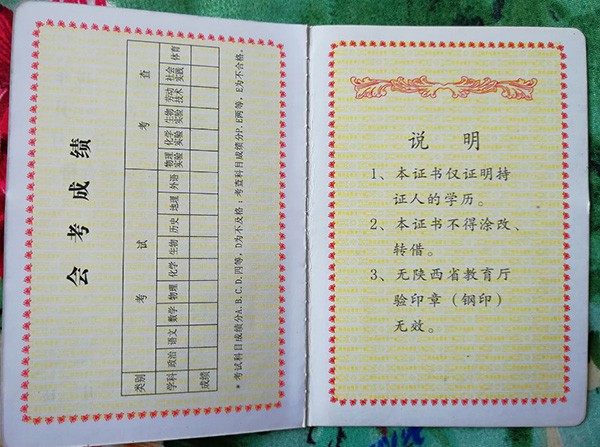 会考成绩
类别 考试 考查
学科 政治 语文 数学 物理 化学 生物 历史 地理 外语 物理实验 化学实验 生物实验 劳动技术 社会实践 体育
成绩
*考试科目成绩分A.B.C.D.四等，D为不及格；考查科目成绩分P、E两等，E为不合格。
说明
1、本证书仅证明持
证人的学历。
2、本证书不得涂改、
转借。
3、无陕西省教育厅
验印章（钢印）
无效。